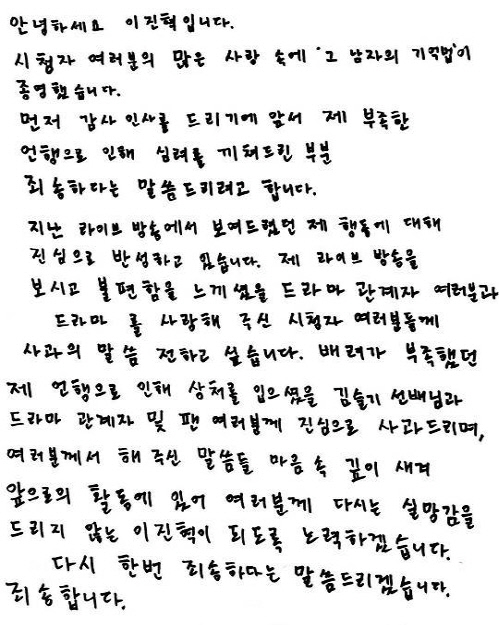 안녕하세요 이진혁입니다.
시청자 여러분의 많은 사랑 속에 '그 남자의 기억법'이
종영했습니다.
먼저 감사 인사를 드리기에 앞서 제 부족한
언행으로 인해 심려를 끼쳐드린 부분
죄송하다는 말씀드리려고 합니다.
지난 라이브 방송에서 보여드렸던 제 행동에 대해
진심으로 반성하고 있습니다. 제 라이브 방송을
보시고 불편함을 느끼셨을 드라마 관계자 여러분과
드라마 를 사랑해 주신 시청자 여러분들께
사과의 말씀 전하고 싶습니다. 배려가 부족했던
제 언행으로 인해 상처를 입으셨을 김슬기 선배님과
드라마 관계자 및 팬 여러분께 진심으로 사과드리며,
여러분께서 해 주신 말씀들 마음 속 깊이 새겨
앞으로의 활동에 있어 여러분께 다시는 실망감을
드리지 않는 이진혁이 되도록 노력하겠습니다.
다시 한번 죄송하다는 말씀드리겠습니다.
죄송합니다.